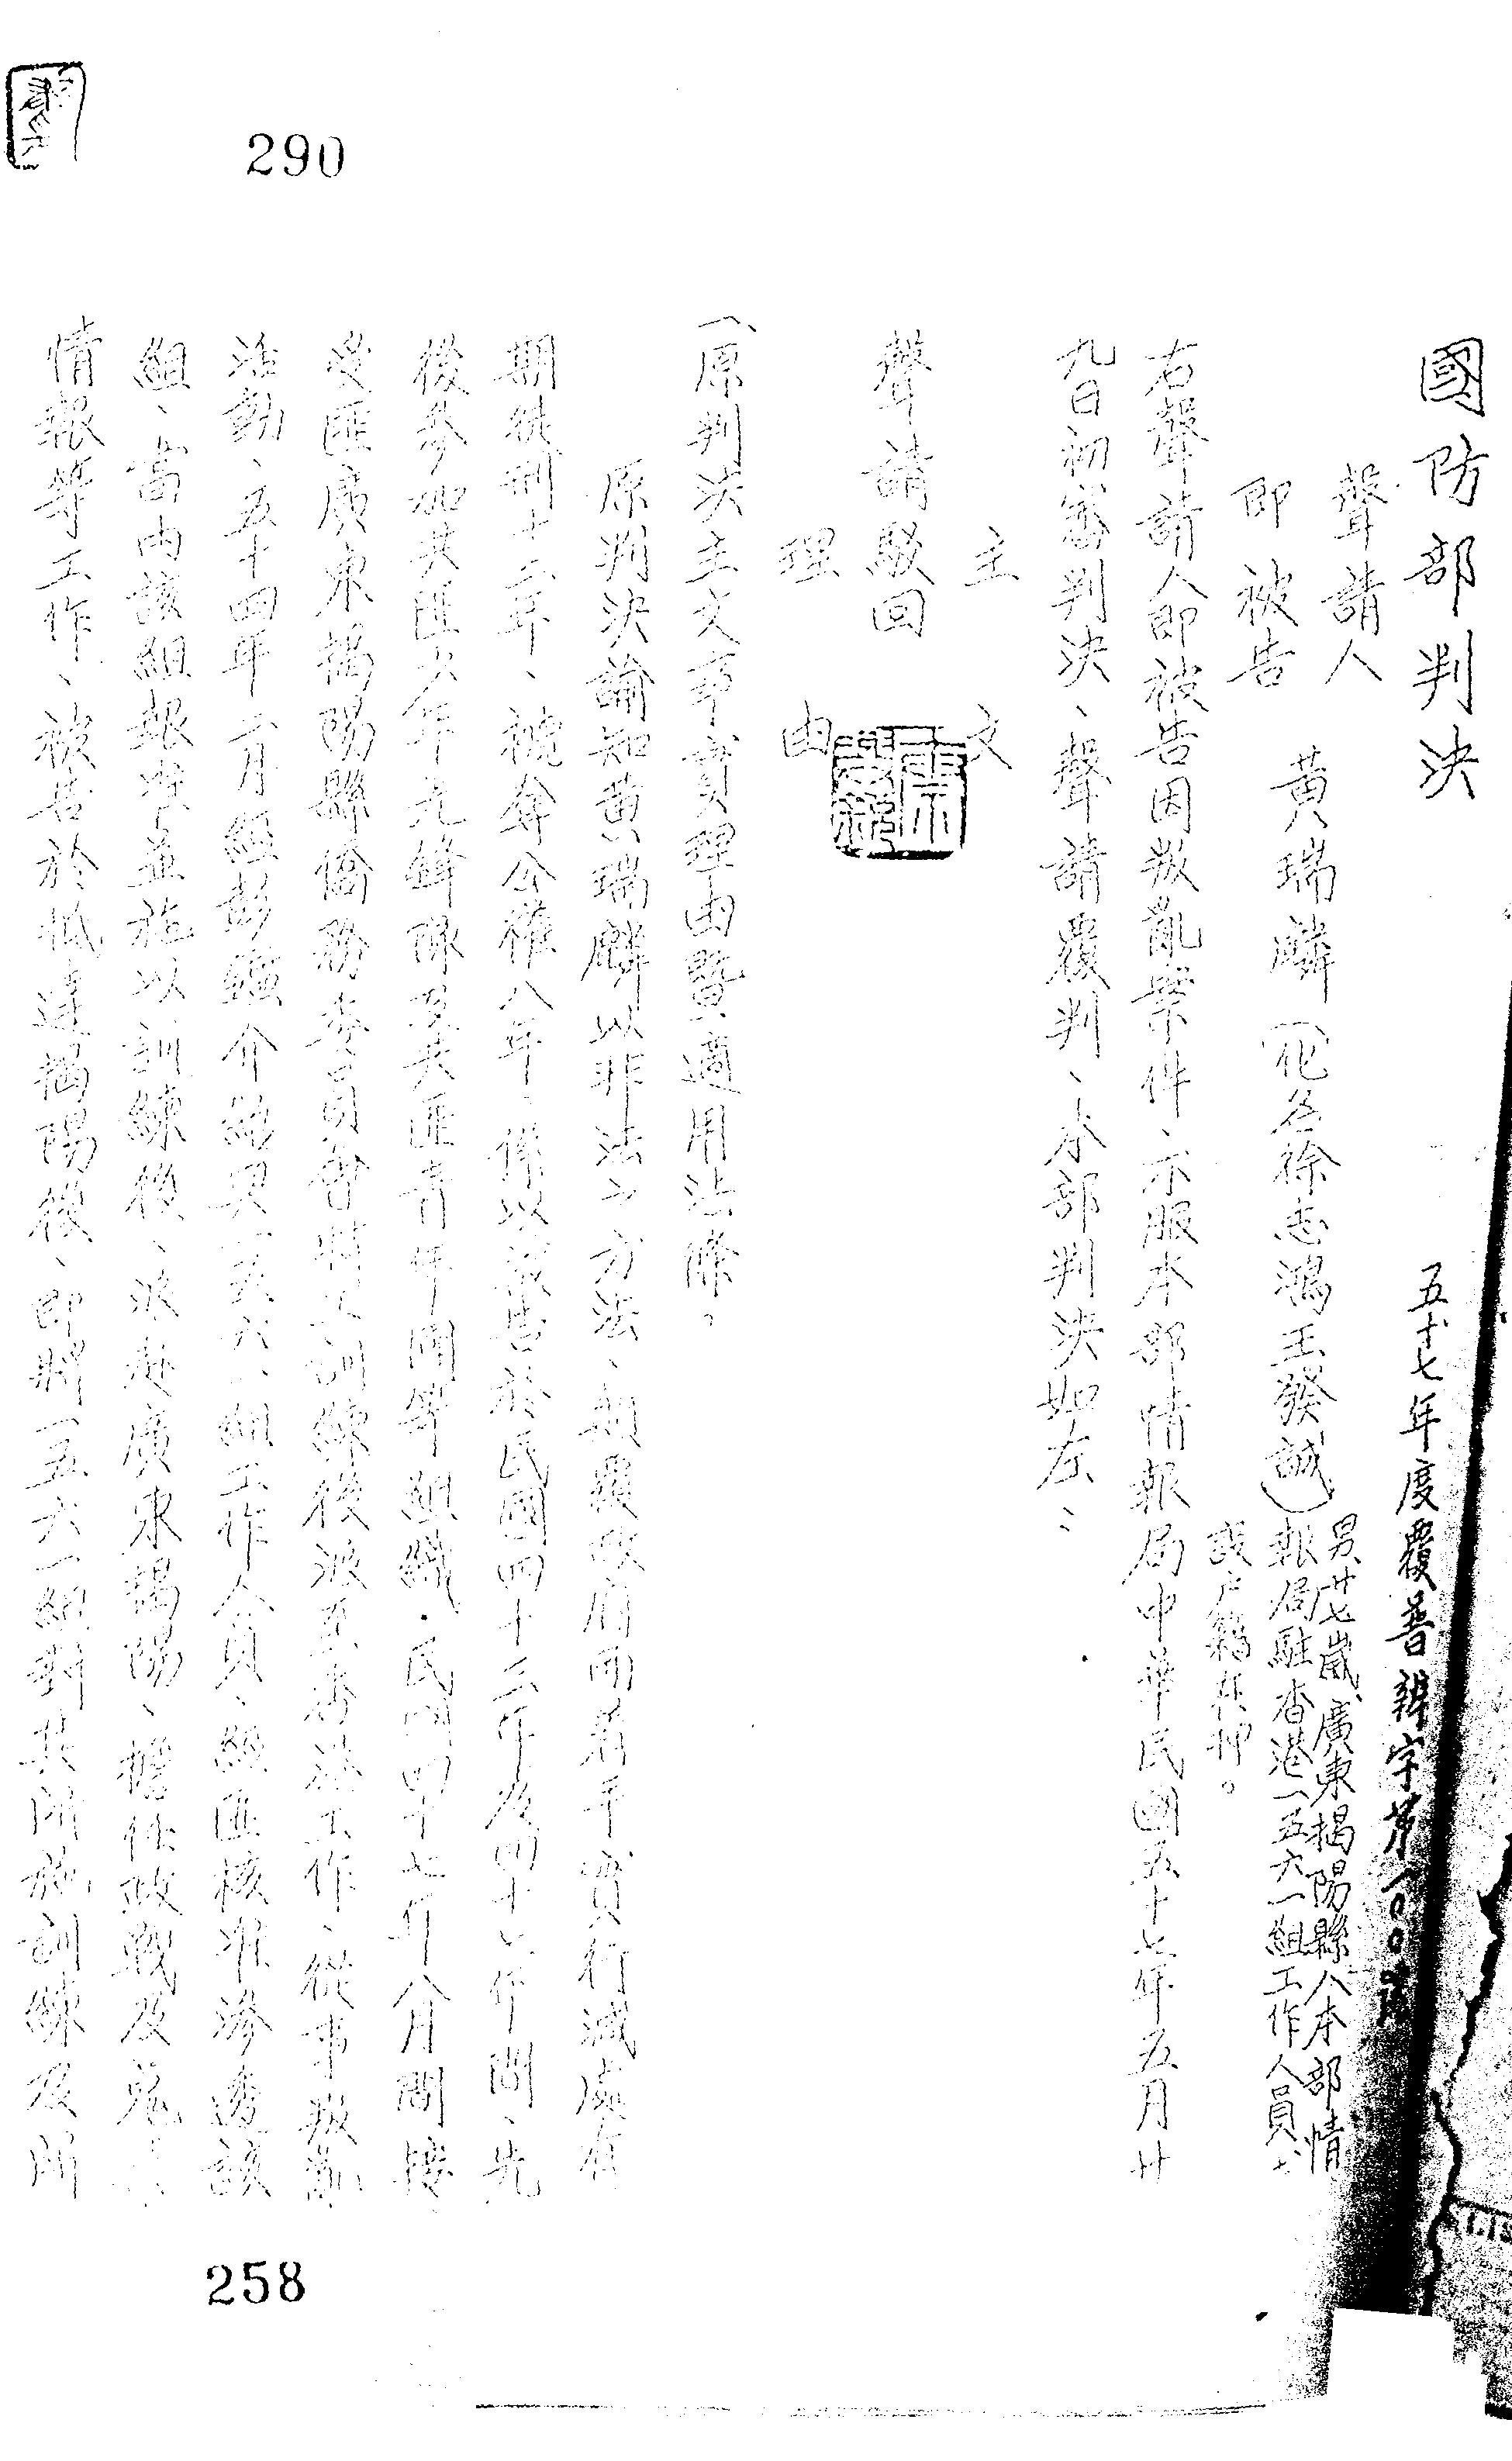 290
國防部判決
五十七年度覆普辦字第一〇〇號
聲請人
即被告
黃瑞麟（化名徐志鴻王發誠）
男廿七歲、廣東揭陽縣人本部情
報局駐香港一五六一組工作人員、
設戶籍在押。
右聲請人即被告因叛亂案件、不服本部情報局中華民國五十七年五月廿
九日初審判決、聲請覆判、本部判決如左：
主文
聲請駁回
理由
一、原判決主文事實理由暨適用法條。
原判決諭知黃瑞麟以非法之方法、顛覆政府而着手實行減處有
期徒刑十二年、褫奪公權八年、係以被告於民國四十三年及四十七年間、先
後參加共匪少年先鋒隊及共匪青年團等組織．民國四十七年八月間接
受匪廣東揭陽縣僑務委員會訓練後派至香港工作、從事叛亂
活動、五十四年二月經彭鐵介紹與一五六一組工作人員、經匪核准滲透該
組、當由該組報准並施以訓練後、派赴廣東揭陽、擔任政戰及蒐集
情報等工作、被告於抵達揭陽後、即將一五六一組對其所施訓練及所
258